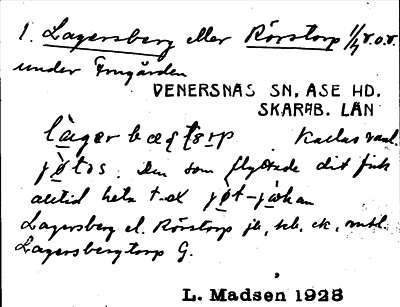 1. Lagersberg eller Rörstorp 1/4 r.o.r.
under Frugården
VENERSNÄS SN, ÅSE HD.
SKARAB. LÄN
làgerbærstorp Kallas vanl.
jøtos. Den som flyttade dit fick
alltid heta t.ex jøt-johan
Lagersberg el. Rörstorp jb, hb, ek, mtl.
Lagersbergstorp G.
L. Madsen 1928